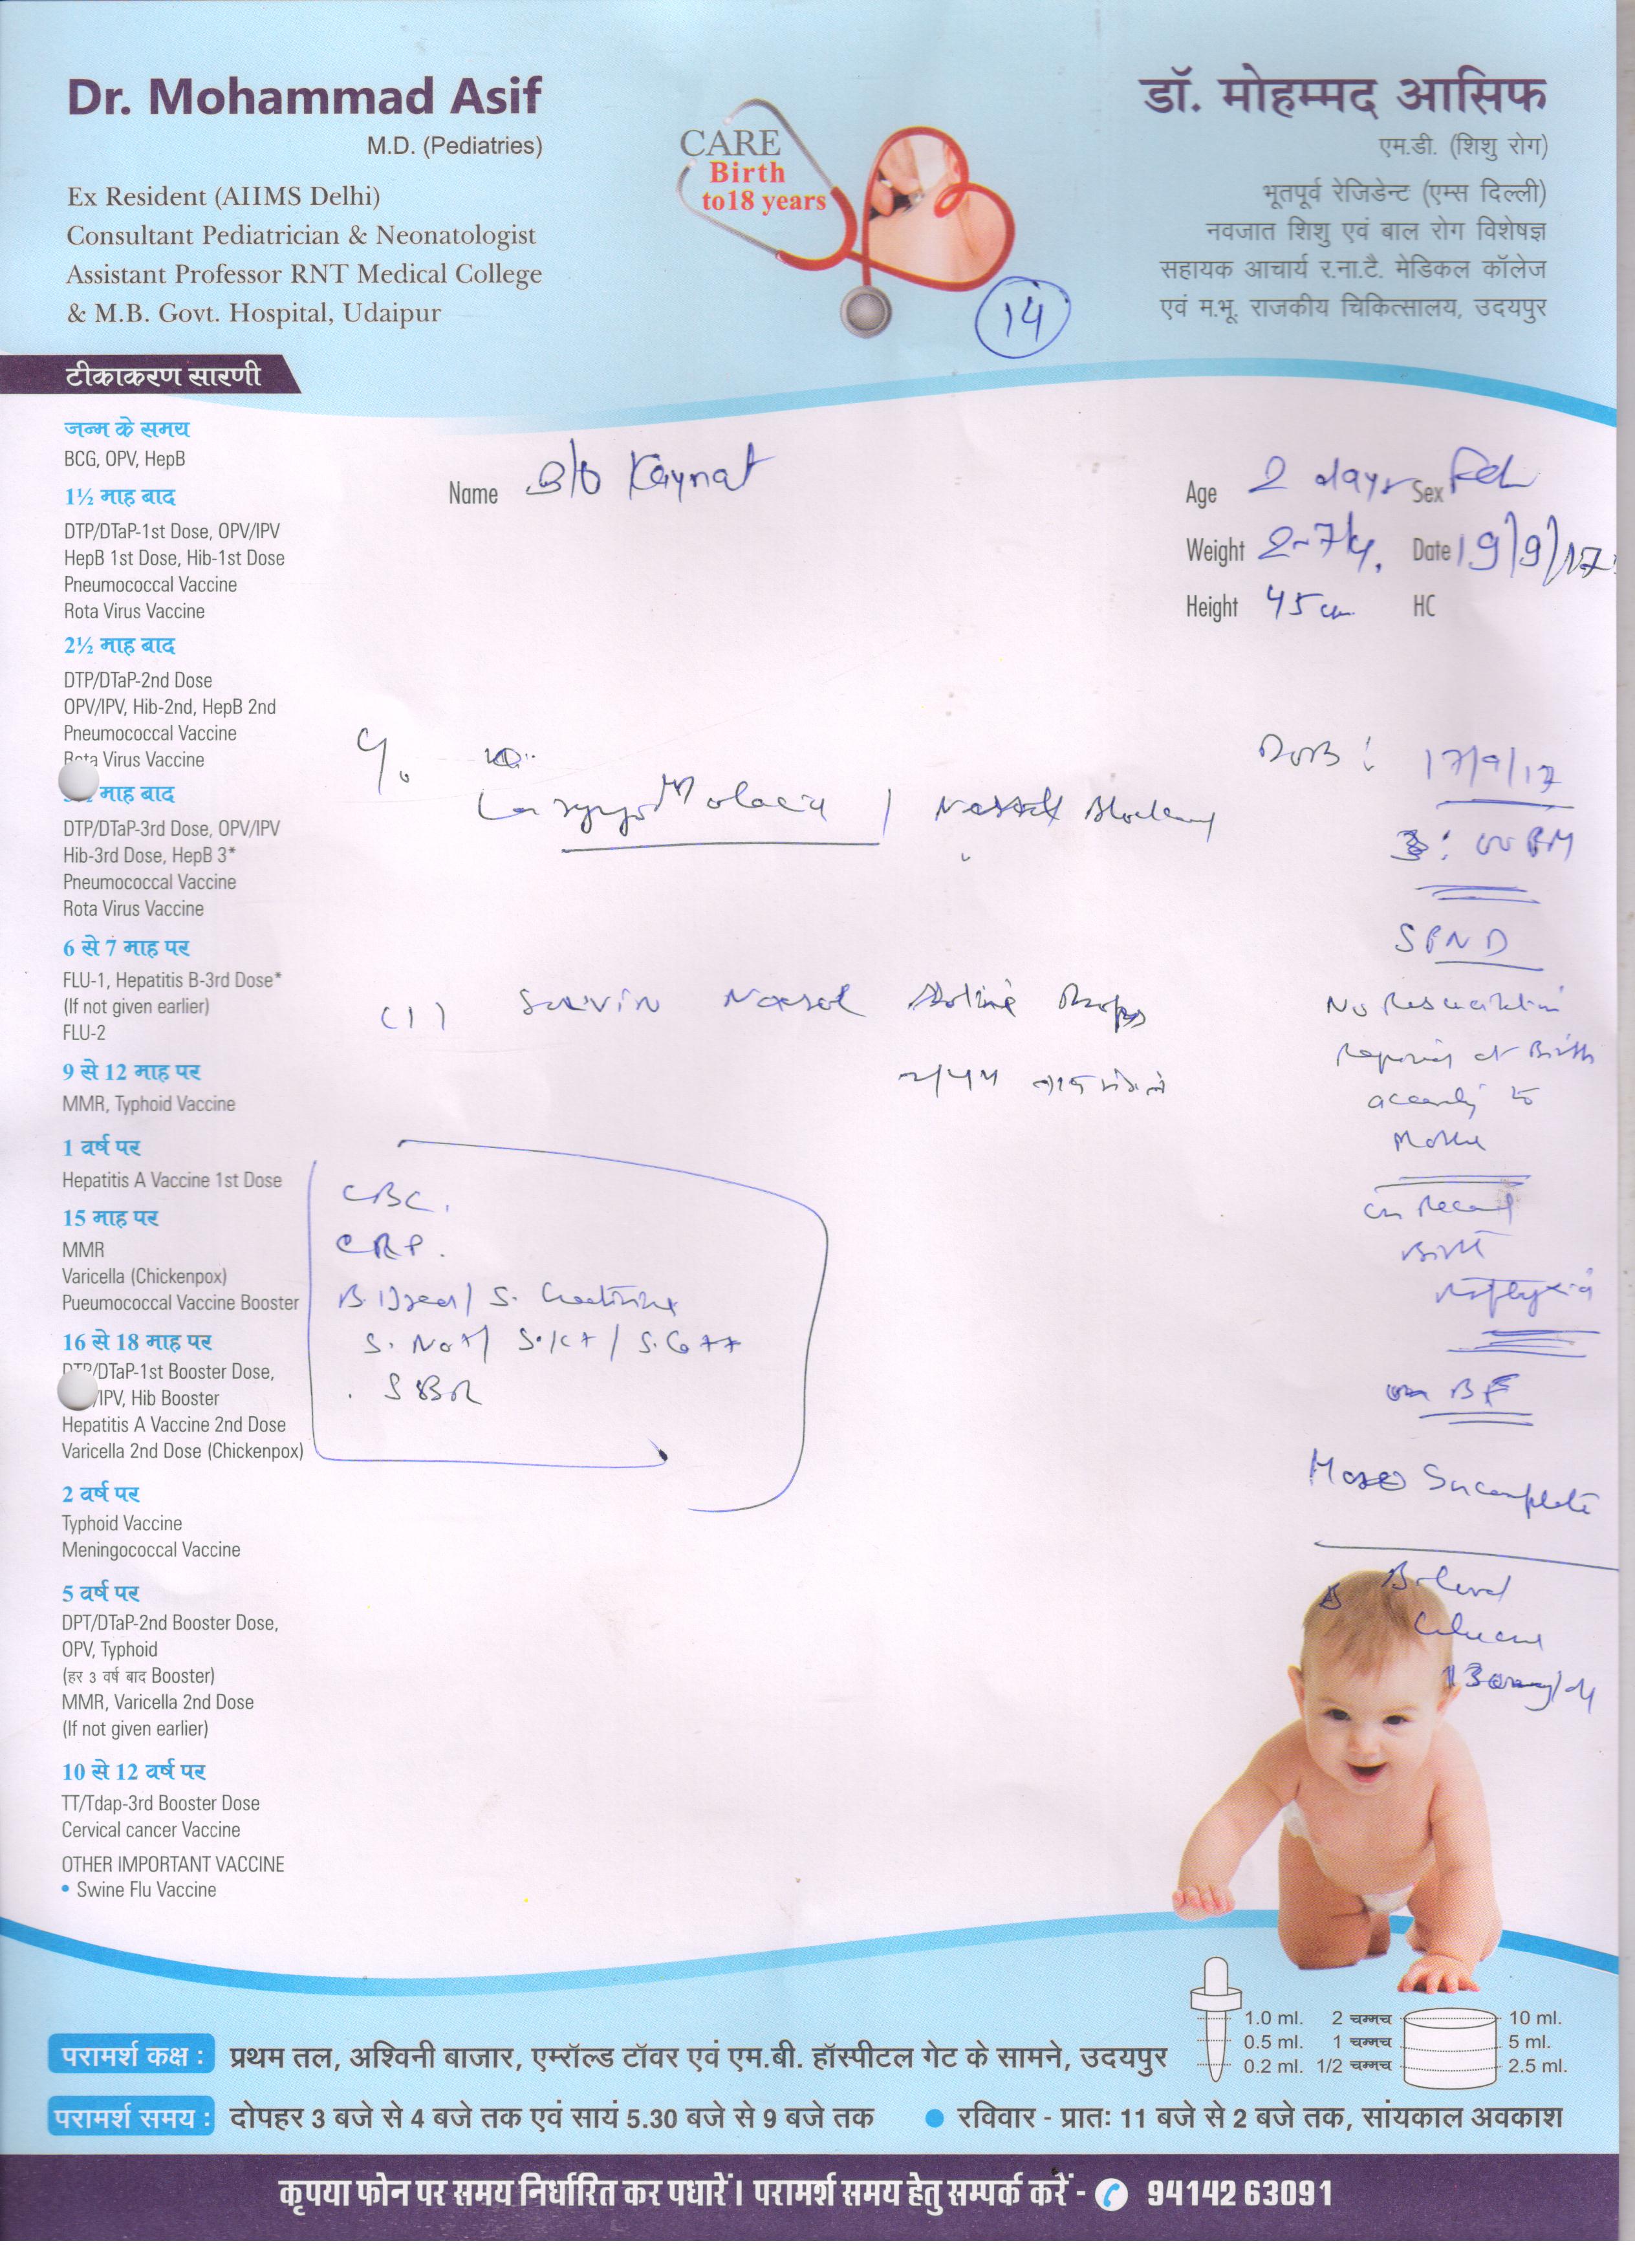 Dr. Mohammad Asif
M.D. (Pediatries)
Ex Resident (AIIMS Delhi)
Consultant Pediatrician & Neonatologist
Assistant Professor RNT Medical College
& M.B. Govt. Hospital, Udaipur
CARE
Birth
to18 years
14
डॉ. मोहम्मद आसिफ
एम.डी. (शिशु रोग)
भूतपूर्व रेजिडेन्ट (एम्स दिल्ली)
नवजात शिशु एवं बाल रोग विशेषज्ञ
सहायक आचार्य र.ना.टै. मेडिकल कॉलेज
एवं म.भू. राजकीय चिकित्सालय, उदयपुर
टीकाकरण सारणी
जन्म के समय
BCG, OPV, HepB
1½ माह बाद
DTP/DTaP-1st Dose, OPV/IPV
HepB 1st Dose, Hib-1st Dose
Pneumococcal Vaccine
Rota Virus Vaccine
2½ माह बाद
DTP/DTaP-2nd Dose
OPV/IPV, Hib-2nd, HepB 2nd
Pneumococcal Vaccine
Rota Virus Vaccine
माह बाद
DTP/DTaP-3rd Dose, OPV/IPV
Hib-3rd Dose, HepB 3*
Pneumococcal Vaccine
Rota Virus Vaccine
6 से 7 माह पर
FLU-1, Hepatitis B-3rd Dose*
(If not given earlier)
FLU-2
9 से 12 माह पर
MMR, Typhoid Vaccine
1 वर्ष पर
Hepatitis A Vaccine 1st Dose
15 माह पर
MMR
Varicella (Chickenpox)
Pueumococcal Vaccine Booster
16 से 18 माह पर
DTP/DTaP-1st Booster Dose,
/IPV, Hib Booster
Hepatitis A Vaccine 2nd Dose
Varicella 2nd Dose (Chickenpox)
2 वर्ष पर
Typhoid Vaccine
Meningococcal Vaccine
5 वर्ष पर
DPT/DTaP-2nd Booster Dose,
OPV, Typhoid
(हर 3 वर्ष बाद Booster)
MMR, Varicella 2nd Dose
(If not given earlier)
10 से 12 वर्ष पर
TT/Tdap-3rd Booster Dose
Cervical cancer Vaccine
OTHER IMPORTANT VACCINE
• Swine Flu Vaccine
Name B/O Kaynat
Age 2 days Sex Fch
Weight 2.7 kg. Date 19/9/17
Height 45 cm HC
C/o
LaryngoMalacia / Nasal Blockage
(1) Nasal Saline Drops
CBC.
CRP.
B. Urea / S. Creatinine
S. Na+ / S. K+ / S. Ca++
SBR
DOB : 17/9/17
BM
SPND
No Resuscitation
Requiring at Birth
according to
Mother
on Record
Birth
Asphyxia
on BF
Moro Incomplete
B. level
Glucose
परामर्श कक्ष : प्रथम तल, अश्विनी बाजार, एम्रॉल्ड टॉवर एवं एम.बी. हॉस्पीटल गेट के सामने, उदयपुर
1.0 ml. 2 चम्मच 10 ml.
0.5 ml. 1 चम्मच 5 ml.
0.2 ml. 1/2 चम्मच 2.5 ml.
परामर्श समय : दोपहर 3 बजे से 4 बजे तक एवं सायं 5.30 बजे से 9 बजे तक • रविवार - प्रातः 11 बजे से 2 बजे तक, सांयकाल अवकाश
कृपया फोन पर समय निर्धारित कर पधारें। परामर्श समय हेतु सम्पर्क करें - 94142 63091